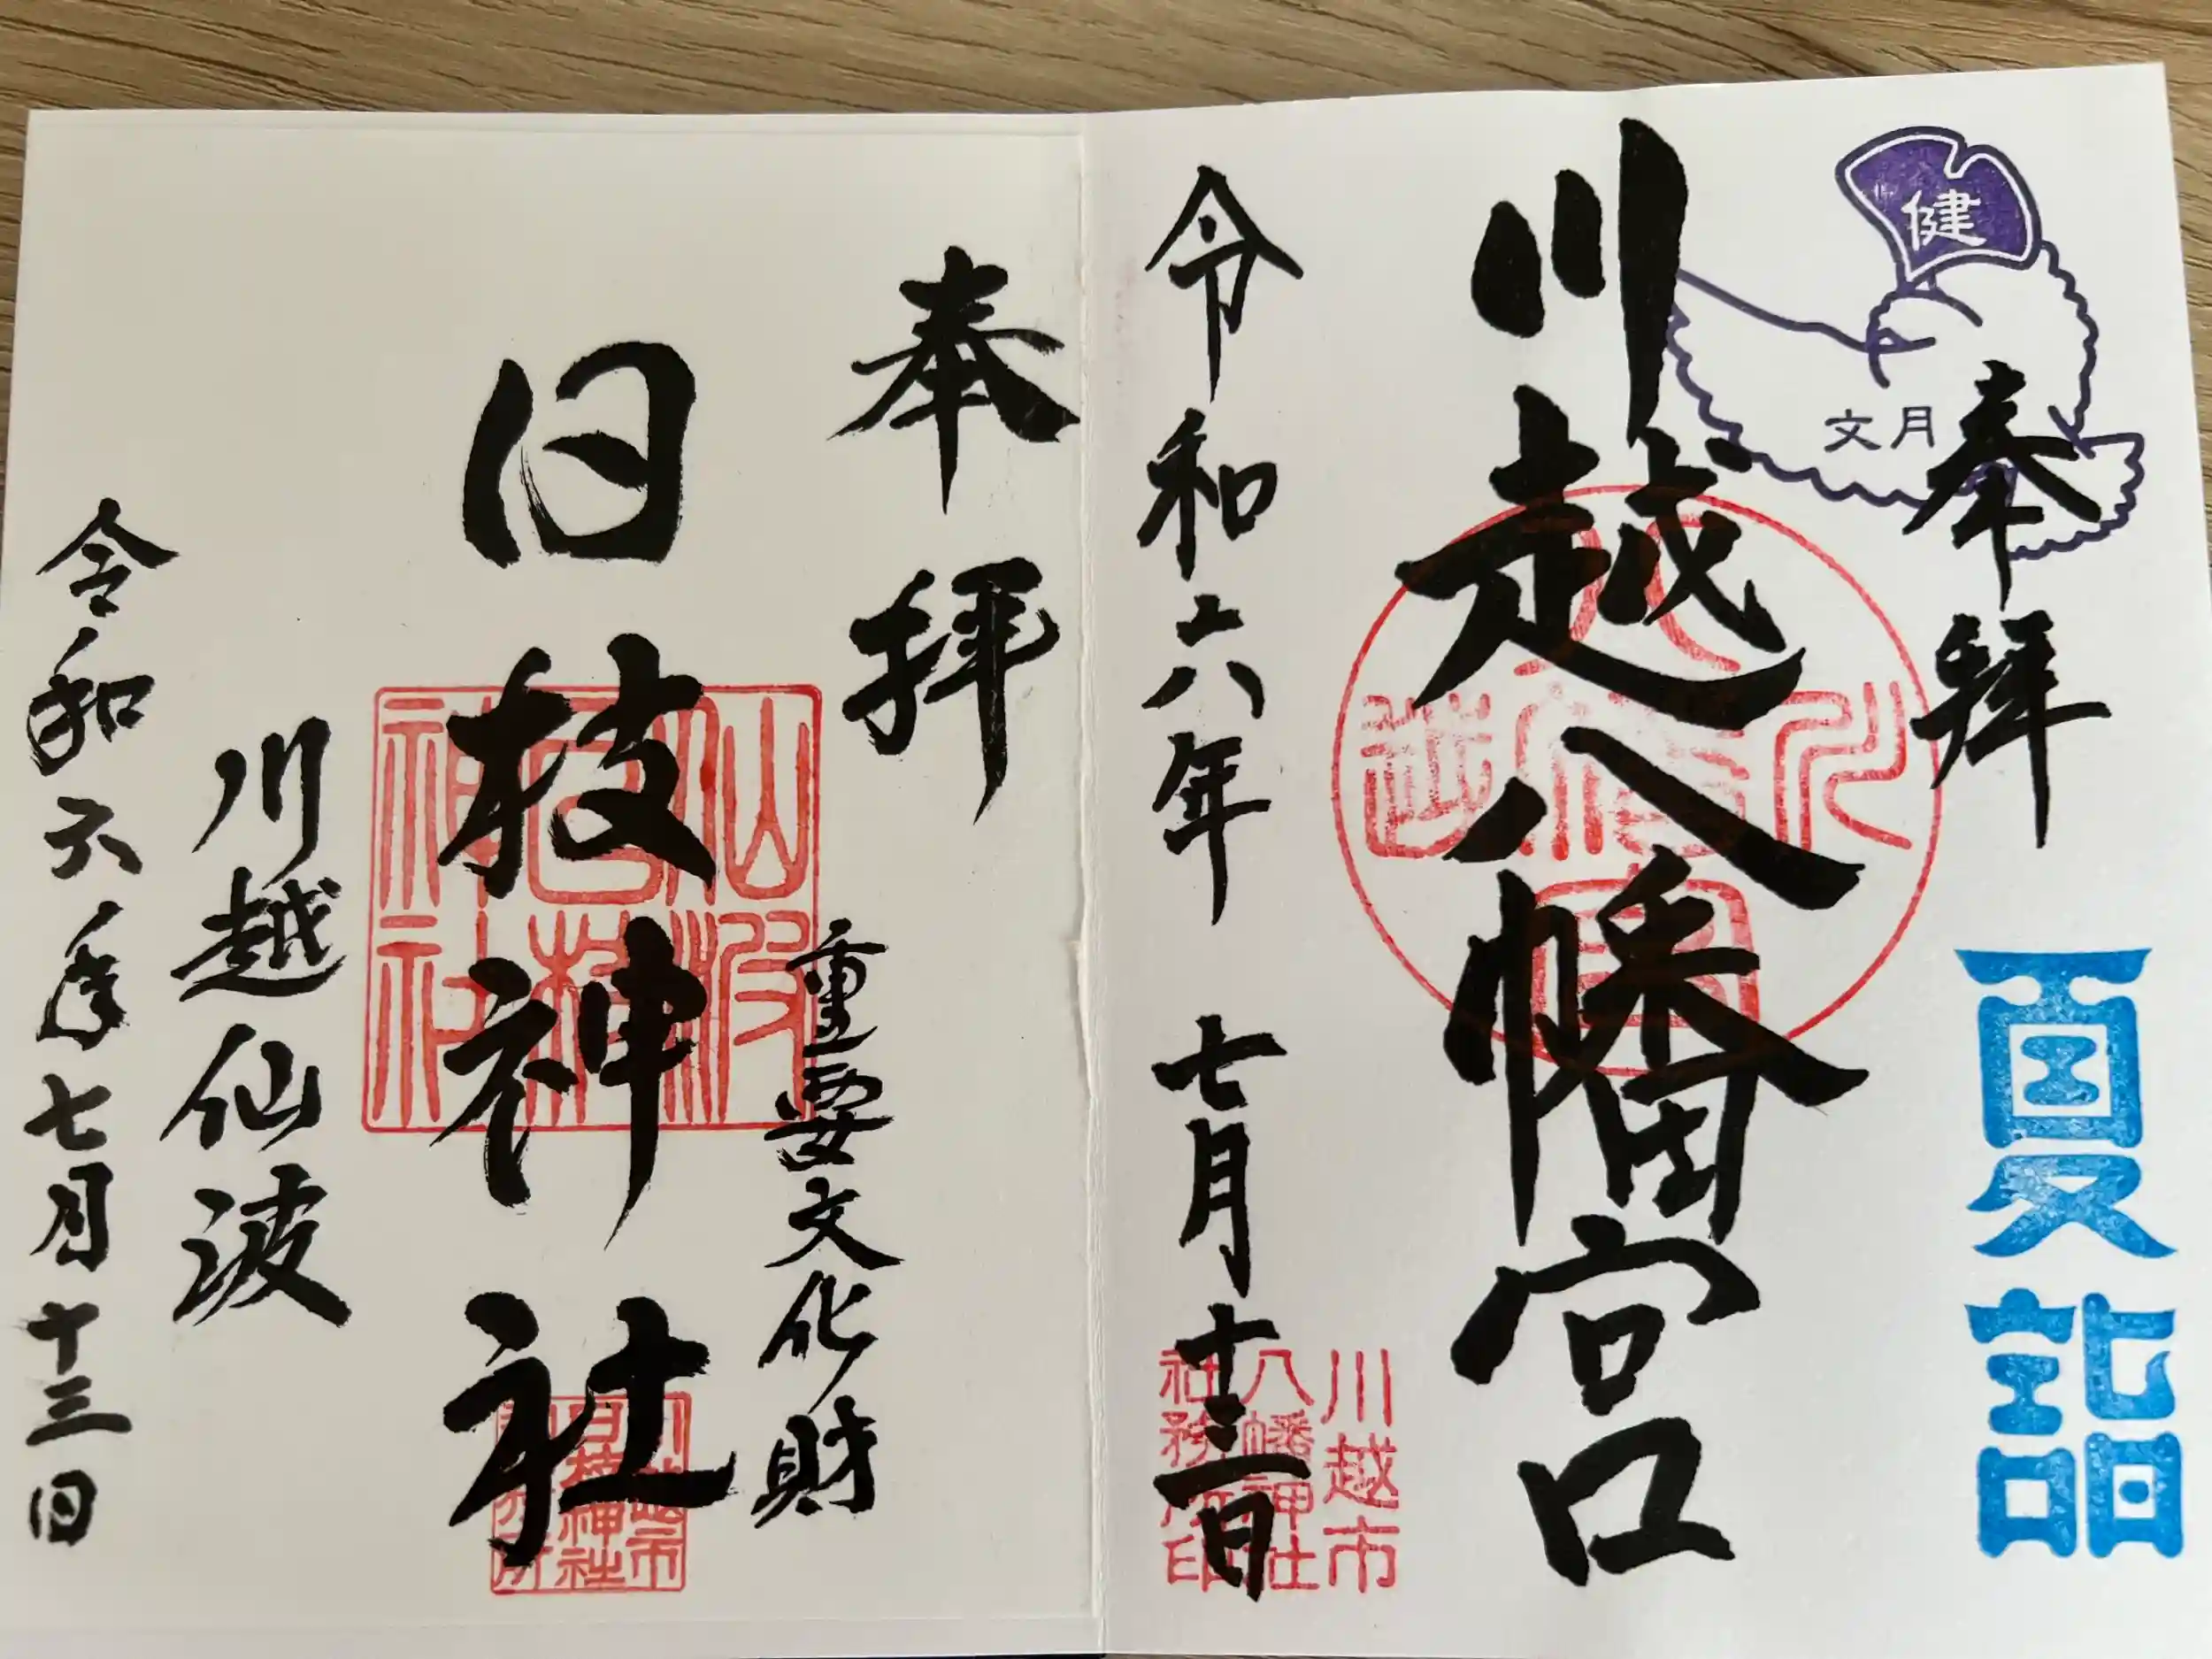 健
文月
奉拝
夏詣
川越八幡宮
令和六年 七月十三日
川越市
八幡神社
社務所印
奉拝
重要文化財
日枝神社
仙波
日枝
神社
川越仙波
令和六年七月十三日